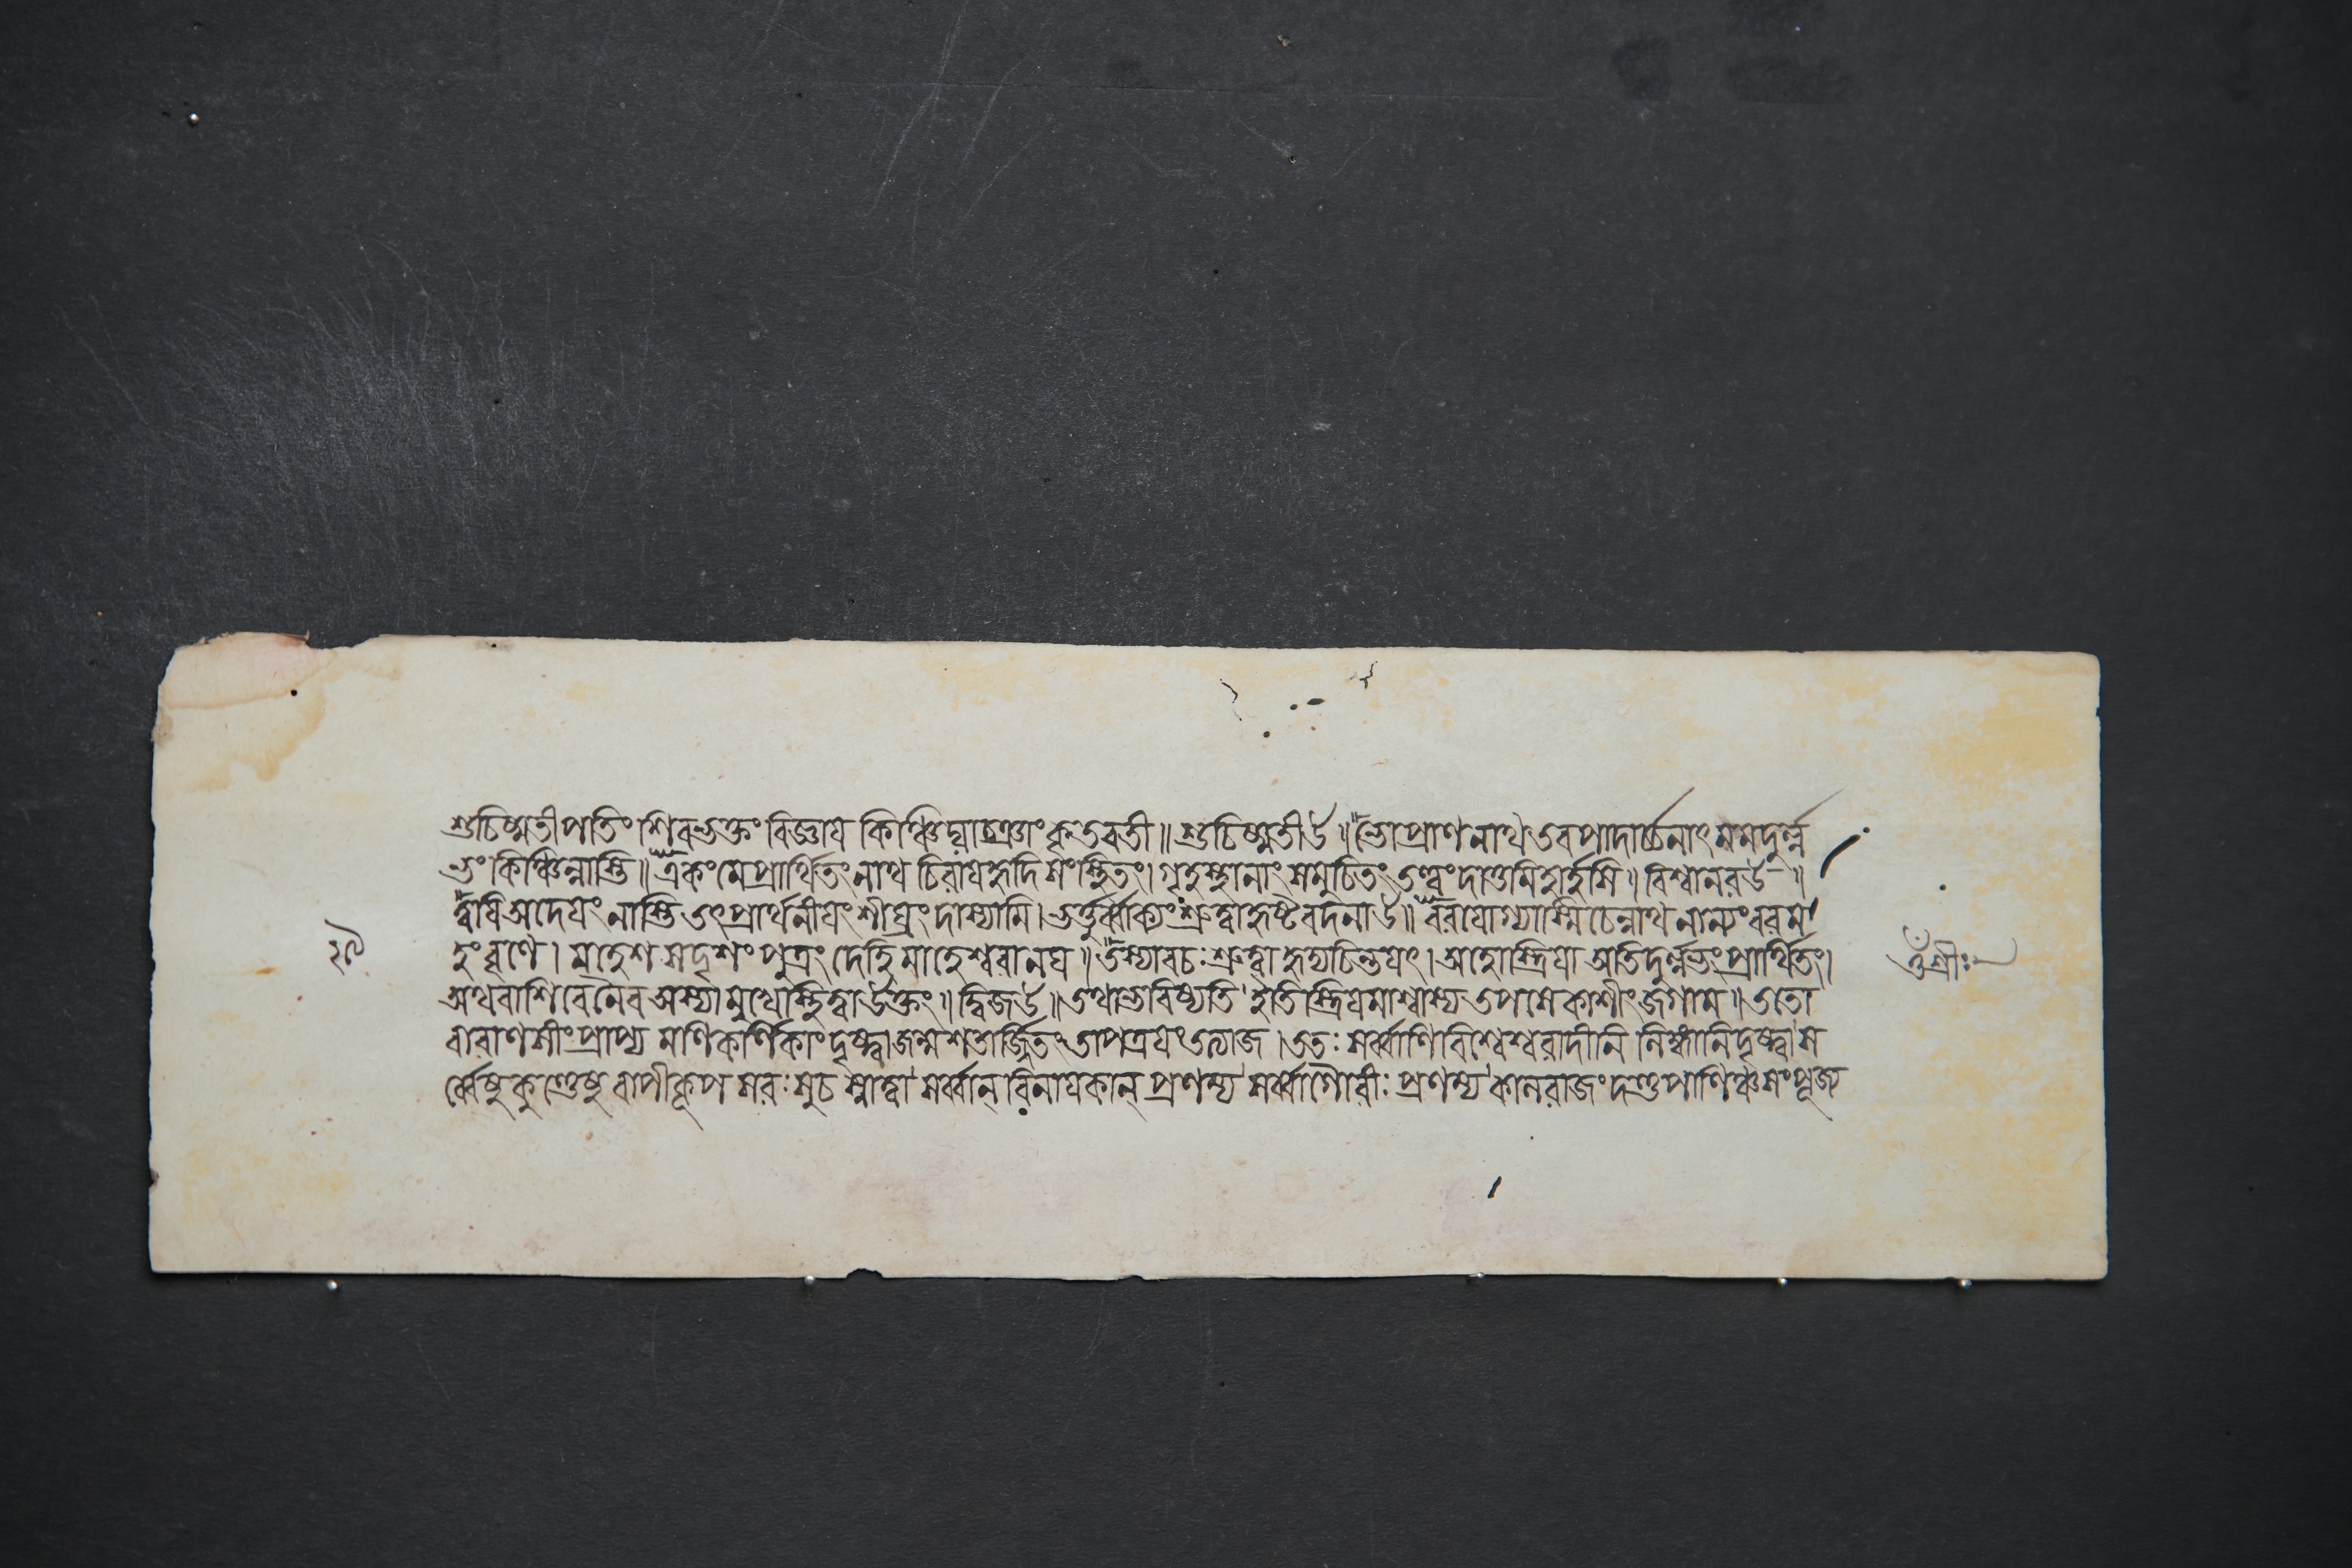 শুচিষ্মতী পতিং শিবভক্তং বিজ্ঞায কিঞ্চিদ্যাচ্ঞাং কৃতবতী ॥ শুচিষ্মতীউ ॥ ভো প্রাণনাথ তবপাদার্চ্চনাৎ মমদুর্ল্ল
ভং কিঞ্চিন্নাস্তি ॥ একং মে প্রার্থিতং নাথ চিরায হৃদি সংস্থিতং। গৃহস্থানাং সমুচিতং তত্ত্বং দাতুমিহার্হসি ॥ বিশ্বানরউ ॥
ত্বযি অদেযং নাস্তি তৎপ্রার্থনীযং শীঘ্রং দাস্যামি। ভর্ত্তুর্ব্বাক্যং শ্রুত্বা হৃষ্টবদনাউ ॥ বরযোগ্যাস্মি চেন্নাথ নান্যং বরম
হং বৃণে। মহেশসদৃশং পুত্রং দেহি মাহেশ্বরানঘ ॥ তস্যাবচঃ শ্রুত্বা হৃদ্যচিন্তযৎ। অহোস্ত্রিযা অতিদুর্ল্লভং প্রার্থিতং।
ওঁ শ্রীঃ
অথবা শিবেনৈব অস্যা মুখে স্থিত্বা উক্তং ॥ দ্বিজউ ॥ তথা ভবিষ্যতি ইতি স্ত্রিযমাশ্বাস্য তপসে কাশীং জগাম ॥ ততো
বারাণসীং প্রাপ্য মণিকর্ণিকাং দৃষ্ট্বা জন্মশতার্জ্জিতং তাপত্রযং তত্যাজ। ততঃ সর্ব্বাণি বিশ্বেশ্বরাদীনি লিঙ্গানি দৃষ্ট্বা স
র্ব্বেষু কুণ্ডেষু বাপীকূপ সরঃসুচ স্নাত্বা সর্ব্বান্ বিনাযকান্ প্রণম্য সর্ব্বাগৌরীঃ প্রণম্য কালরাজং দণ্ডপাণিঞ্চ সংপূজ্য